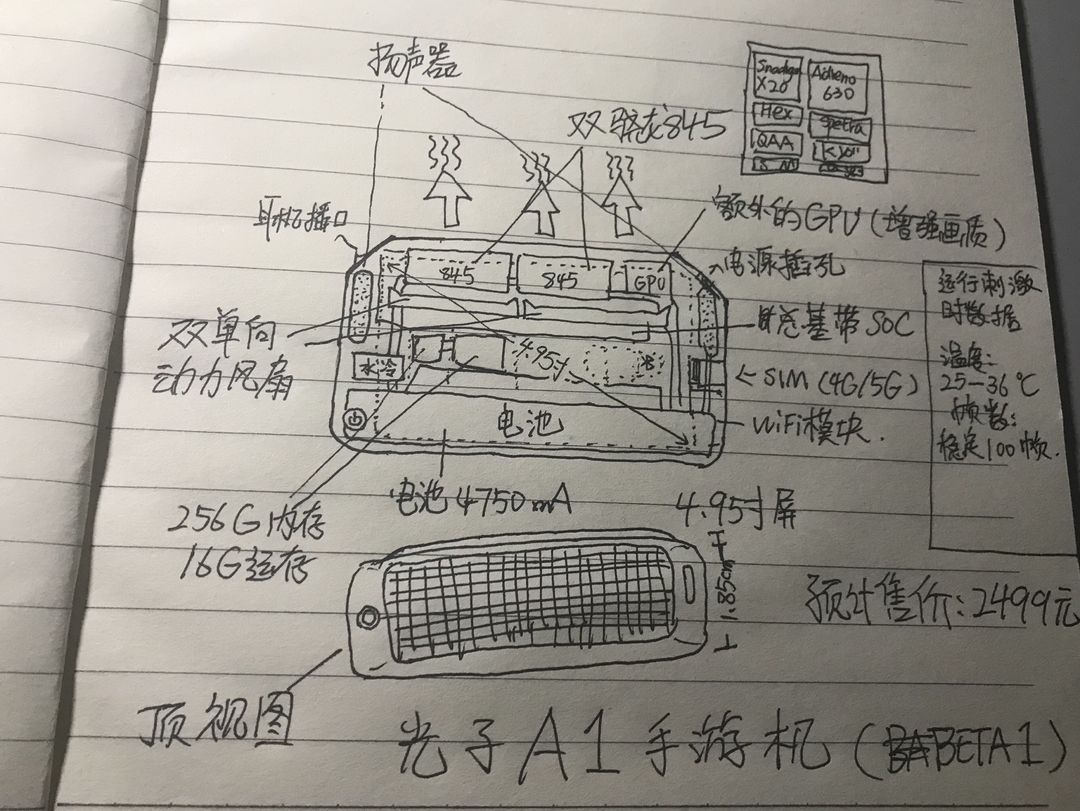 扬声器
双骁龙845
Snadrgn
X20
Adreno
630
Hex
Spetra
QAA
耳机插口
额外的GPU(增强画质)
845
845
GPU
电源插孔
双单向
动力风扇
基带SoC
水冷
4.95寸
SIM(4G/5G)
电池
WiFi模块.
运行刺激
时数据
温度:
25-36℃
帧数:
稳定100帧.
电池4750mA
4.95寸屏
256G内存
16G运存
1.85cm
预计售价:2499元
顶视图
光子A1手游机(BETA1)